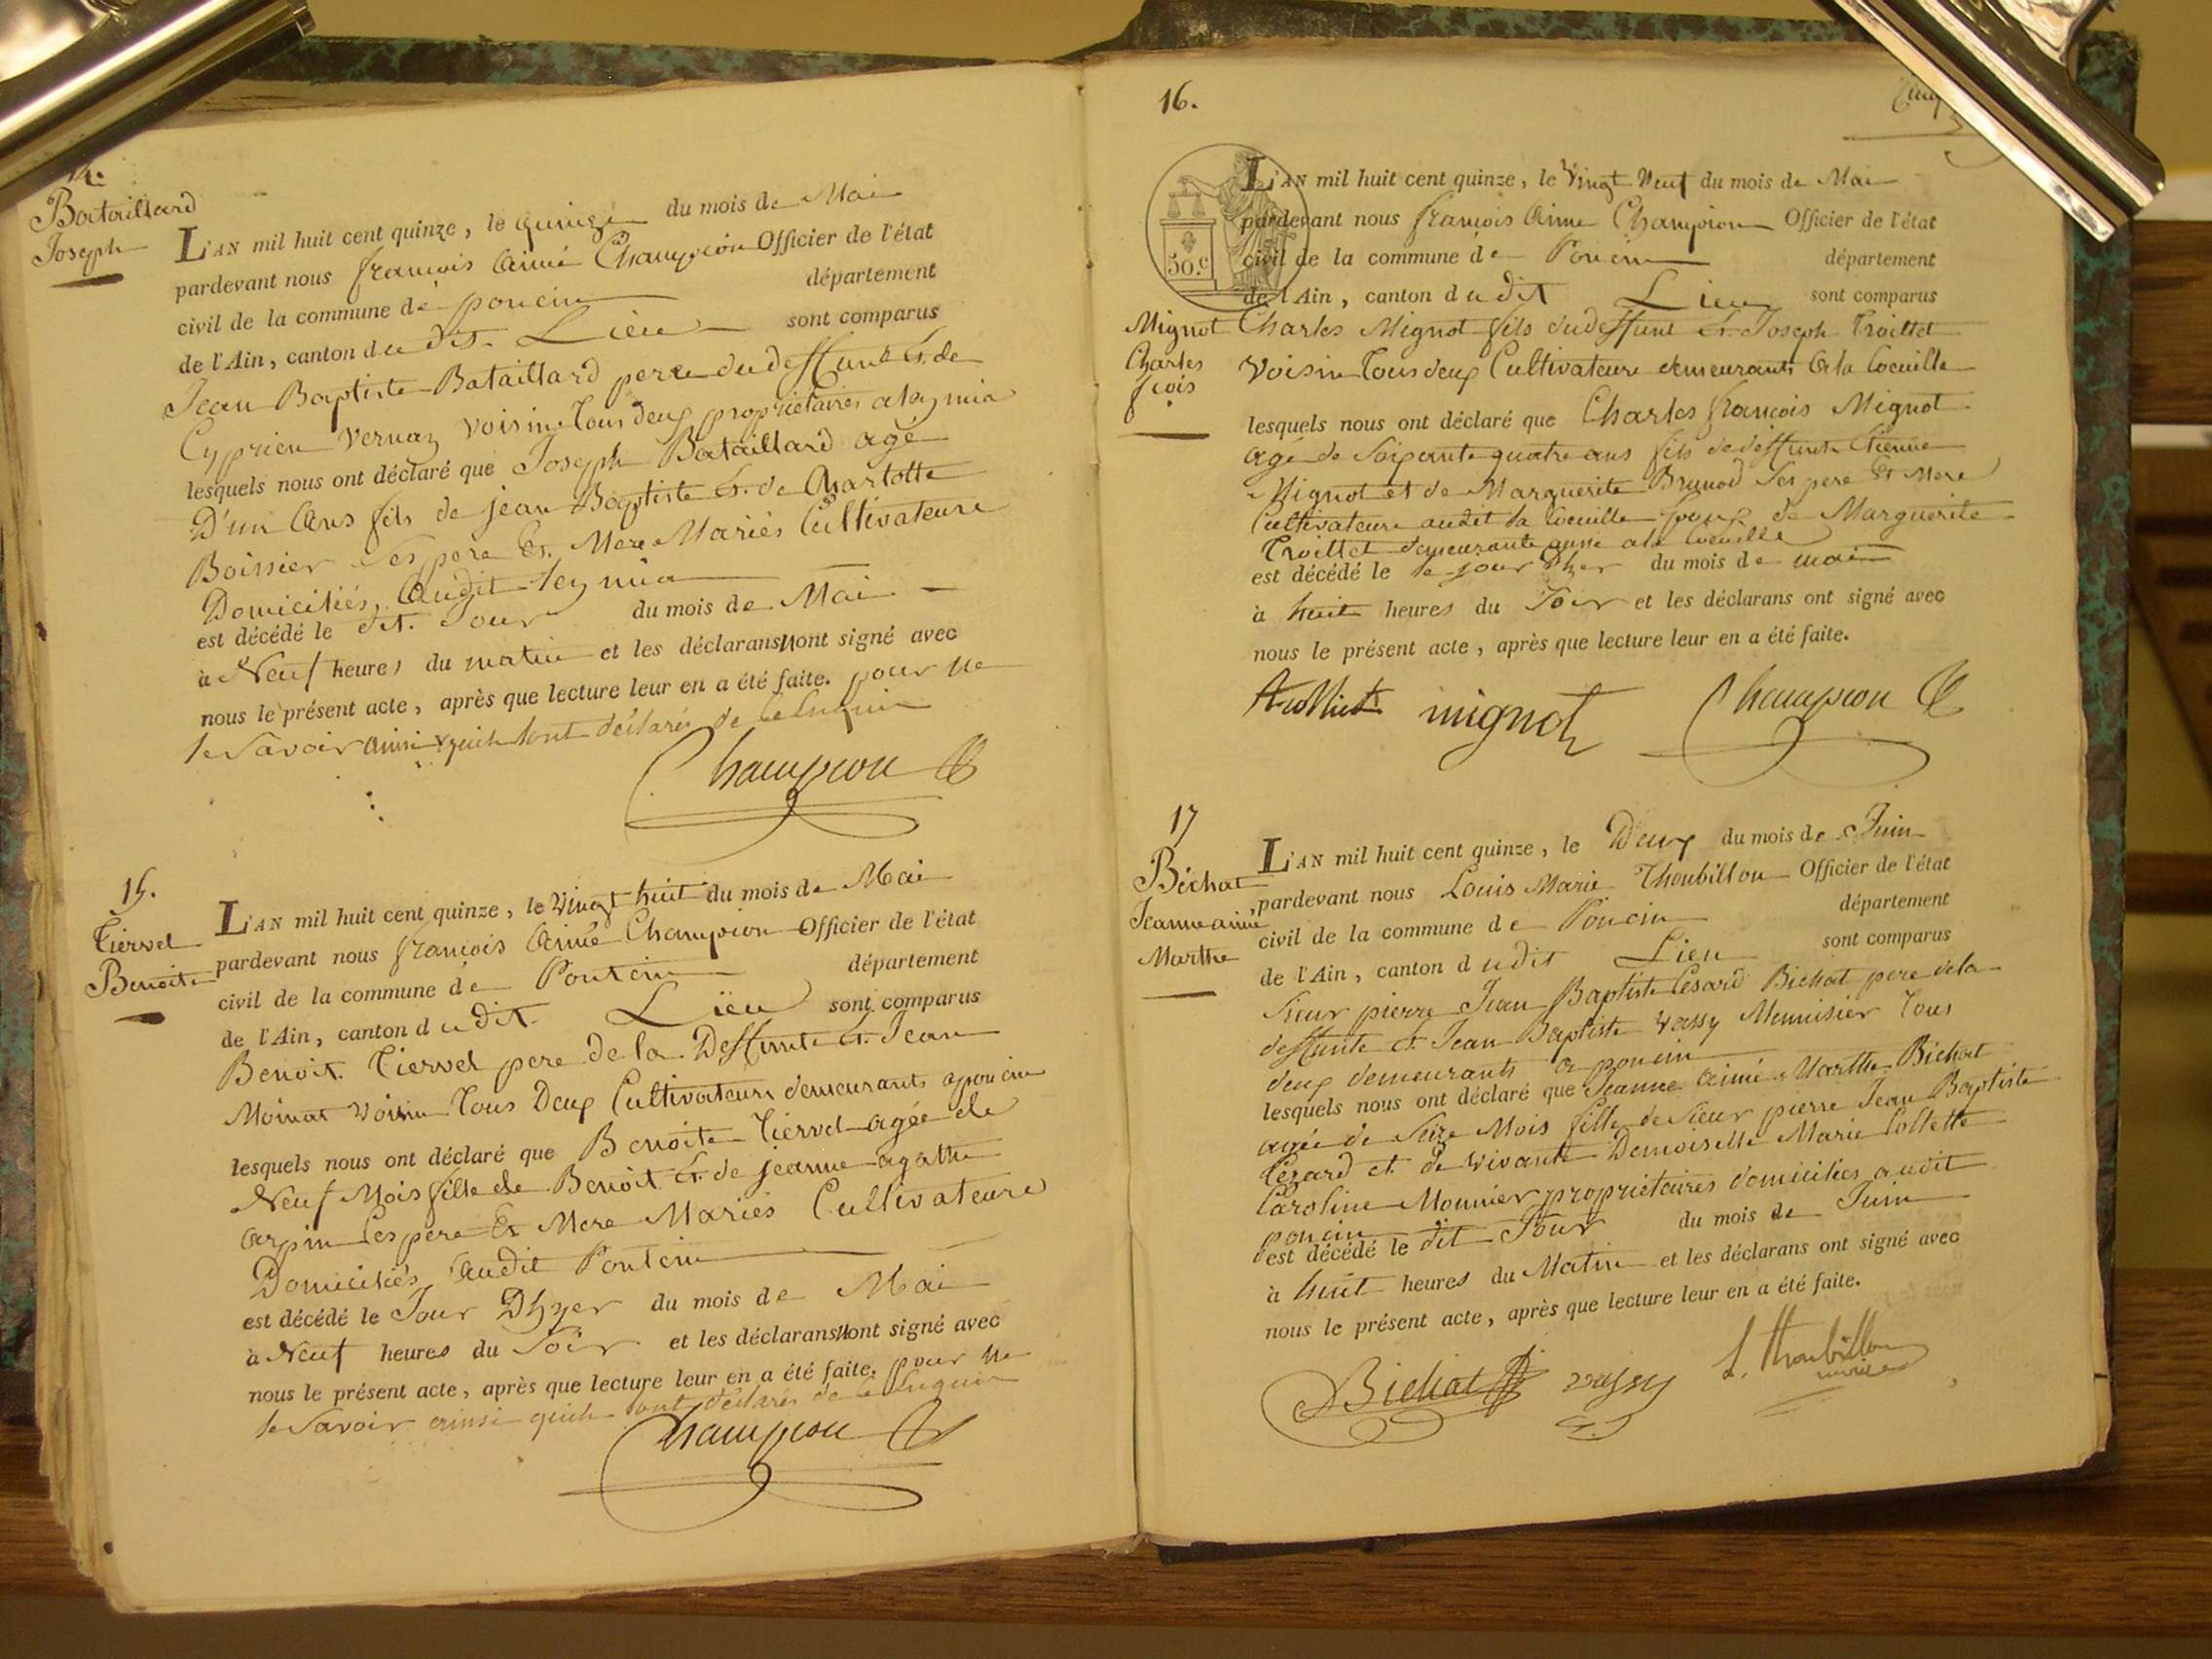 Bataillard
Joseph
L'AN mil huit cent quinze, le quinze du mois de Mai
pardevant nous françois Aimé Champion Officier de l'état
civil de la commune de poncin département
de l'Ain, canton du dit Lieu sont comparus
Jean Baptiste Bataillard perre du deffunt et de
Cyprien Vernaz voisin Tous deux propriétaires a leymia
lesquels nous ont déclaré que Joseph Bataillard agé
D'un Ans fils de jean Baptiste et de Charlotte
Boissier Ses pere Et Mere Mariés Cultivateurs
Domiciliés Audit leymia
est décédé le dit Jour du mois de Mai
à Neuf heures du matin et les déclarans n'ont signé avec
nous le présent acte, après que lecture leur en a été faite. pour ne
le Savoir ainsi quils lont déclarés de ce Enquis
Champion
15.
Tiervel
Benoite
L'AN mil huit cent quinze, le Vingt huit du mois de Mai
pardevant nous françois Aimé Champion Officier de l'état
civil de la commune de Poncin département
de l'Ain, canton du dit Lieu sont comparus
Benoit Tiervel pere de la Deffunte et Jean
Moinat Voisin Tous Deux Cultivateurs demeurants a poncin
lesquels nous ont déclaré que Benoite Tiervel agée de
Neuf Mois fille de Benoit et de jeanne agathe
arpin Ces pere Et Mere Mariés Cultivateurs
Domiciliés Audit Poncin
est décédé le Jour Dhyer du mois de Mai
à Neuf heures du Soir et les déclarans n'ont signé avec
nous le présent acte, après que lecture leur en a été faite. pour ne
le Savoir ainsi quils lont déclarés de ce Enquis
Champion
16.
50.c
L'AN mil huit cent quinze, le Vingt Neuf du mois de Mai
pardevant nous françois Aimé Champion Officier de l'état
civil de la commune de Poncin département
de l'Ain, canton du dit Lieu sont comparus
Mignot
Charles
fçois
Charles Mignot fils du deffunt et Joseph Troillet
Voisin Tous deux Cultivateurs demeurants A la Coeuille
lesquels nous ont déclaré que Charles françois Mignot
agé de Soixante quatre ans fils de deffunts Etienne
Mignot et de Marguerite Brunod Ses pere Et Mere
Cultivateurs audit la Coeuille Epoux de Marguerite
Troillet demeurante aussi a la Coeuille
est décédé le le jour Dhier du mois de mai
à huit heures du Soir et les déclarans ont signé avec
nous le présent acte, après que lecture leur en a été faite.
Trolliet mignot Champion
17
Béchat
Jeanne aimé
Marthe
L'AN mil huit cent quinze, le Deux du mois de Juin
pardevant nous Louis Marie Thoubillon Officier de l'état
civil de la commune de Poncin département
de l'Ain, canton dudit Lieu sont comparus
Sieur pierre Jean Baptiste Césard Bichat pere de la
deffunte et Jean Baptiste Vassy Menuisier Tous
deux demeurants a poncin
lesquels nous ont déclaré que Jeanne aimé Marthe Bichat
agée de Seize Mois fille de Sieur pierre Jean Baptiste
Cézard et de vivante Demoiselle Marie Collette
Caroline Monnier propriétaires domiciliés audit
poncin
est décédé le dit Jour du mois de Juin
à huit heures du Matin et les déclarans ont signé avec
nous le présent acte, après que lecture leur en a été faite.
Bichat vassy L. Thoubillon
maire